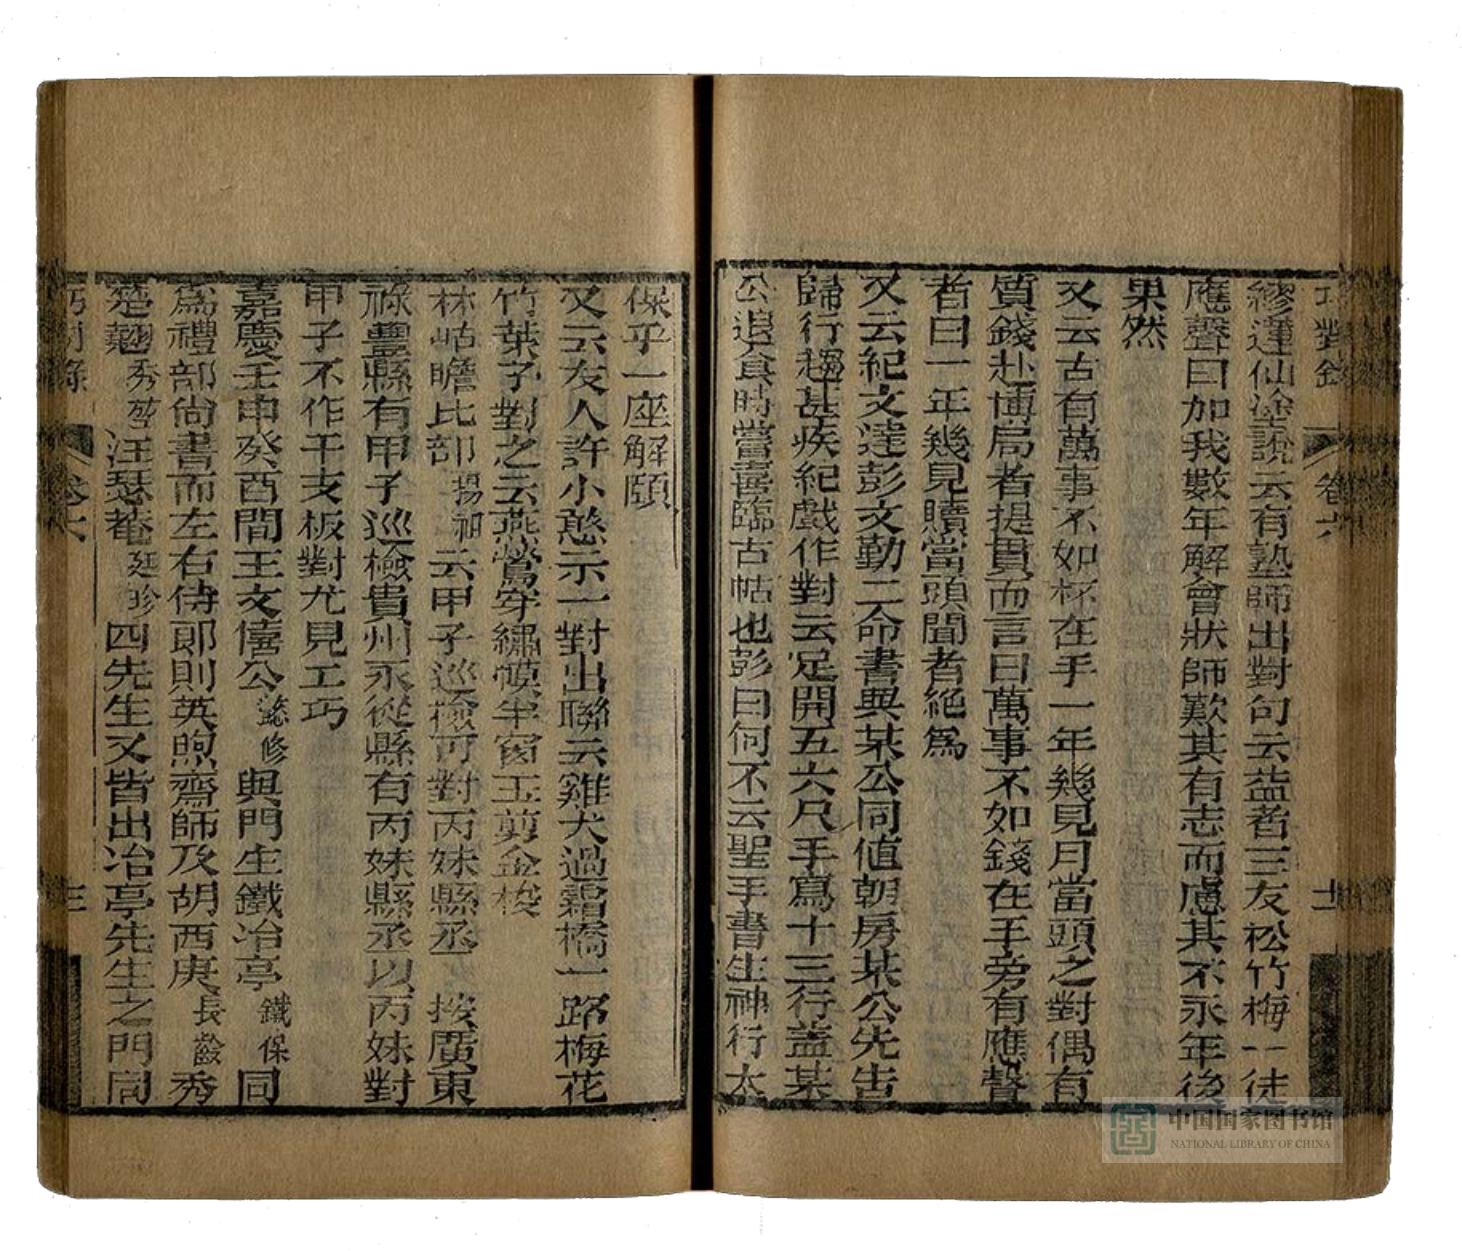 巧對錄 卷六 十一
繆蓮仙塗說云有塾師出對句云益者三友松竹梅一徒
應聲曰加我數年解會狀師歎其有志而慮其不永年後
果然
又云古有萬事不如杯在手一年幾見月當頭之對偶有
質錢赴博局者提貫而言曰萬事不如錢在手旁有應聲
者曰一年幾見贖當頭聞者絕為
又云紀文達彭文勤二命書與某公同値朝房某公先吿
歸行趨甚疾紀戲作對云足開五六尺手寫十三行蓋某
公退食時嘗喜臨古帖也彭曰何不云聖手書生神行太
保乎一座解頤
又云友人許小憨示一對出聯云雞犬過霜橋一路梅花
竹葉子對之云燕鶯穿繡幙半窗玉剪金梭
林岵瞻比部揚祖云甲子巡檢可對丙妹縣丞 按廣東
祿豐縣有甲子巡檢貴州永從縣有丙妹縣丞以丙妹對
甲子不作干支板對尤見工巧
嘉慶壬申癸酉間王文僖公懿修與門生鐵冶亭鐵保同
為禮部尚書而左右侍郎則英煦齋師及胡西庚長齡秀
楚翹秀堃汪瑟菴廷珍四先生又皆出冶亭先生之門同
巧對錄 卷六
中国国家图书馆
NATIONAL LIBRARY OF CHINA